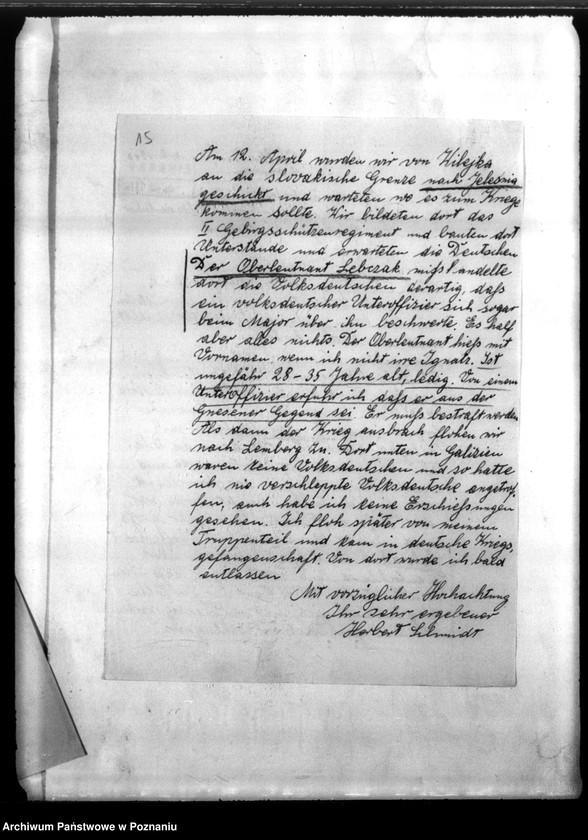 15
Am 12. April wurden wir von Wilejka
an die slovakische Grenze nach Jelesnia
geschickt und warteten wo es zum Kriege
kommen sollte. Wir bildeten dort das
II Gebirgsschützenregiment und bauten dort
Unterstände und erwarteten die Deutschen
Der Oberleutnant Lebczak mißhandelte
dort die Volksdeutschen derartig, daß
ein volksdeutscher Unteroffizier sich sogar
beim Major über ihn beschwerte. Es half
aber alles nichts. Der Oberleutnant hieß mit
Vornamen wenn ich nicht irre Ignatz. Ist
ungefähr 28-35 Jahre alt, ledig. Von einem
Unteroffizier erfuhr ich daß er aus der
Gnesener Gegend sei. Er muß bestraft werden
Als dann der Krieg ausbrach flohen wir
nach Lemberg zu. Dort unten in Galizien
waren keine Volksdeutschen und so hatte
ich nie verschleppte Volksdeutsche angetrof-
fen, auch habe ich keine Erschießungen
gesehen. Ich floh später von meinem
Truppenteil und kam in deutsche Kriegs,
gefangenschaft. Von dort wurde ich bald
entlassen
Mit vorzüglicher Hochachtung
Ihr sehr ergebener
Herbert Schmidt
Archiwum Państwowe w Poznaniu